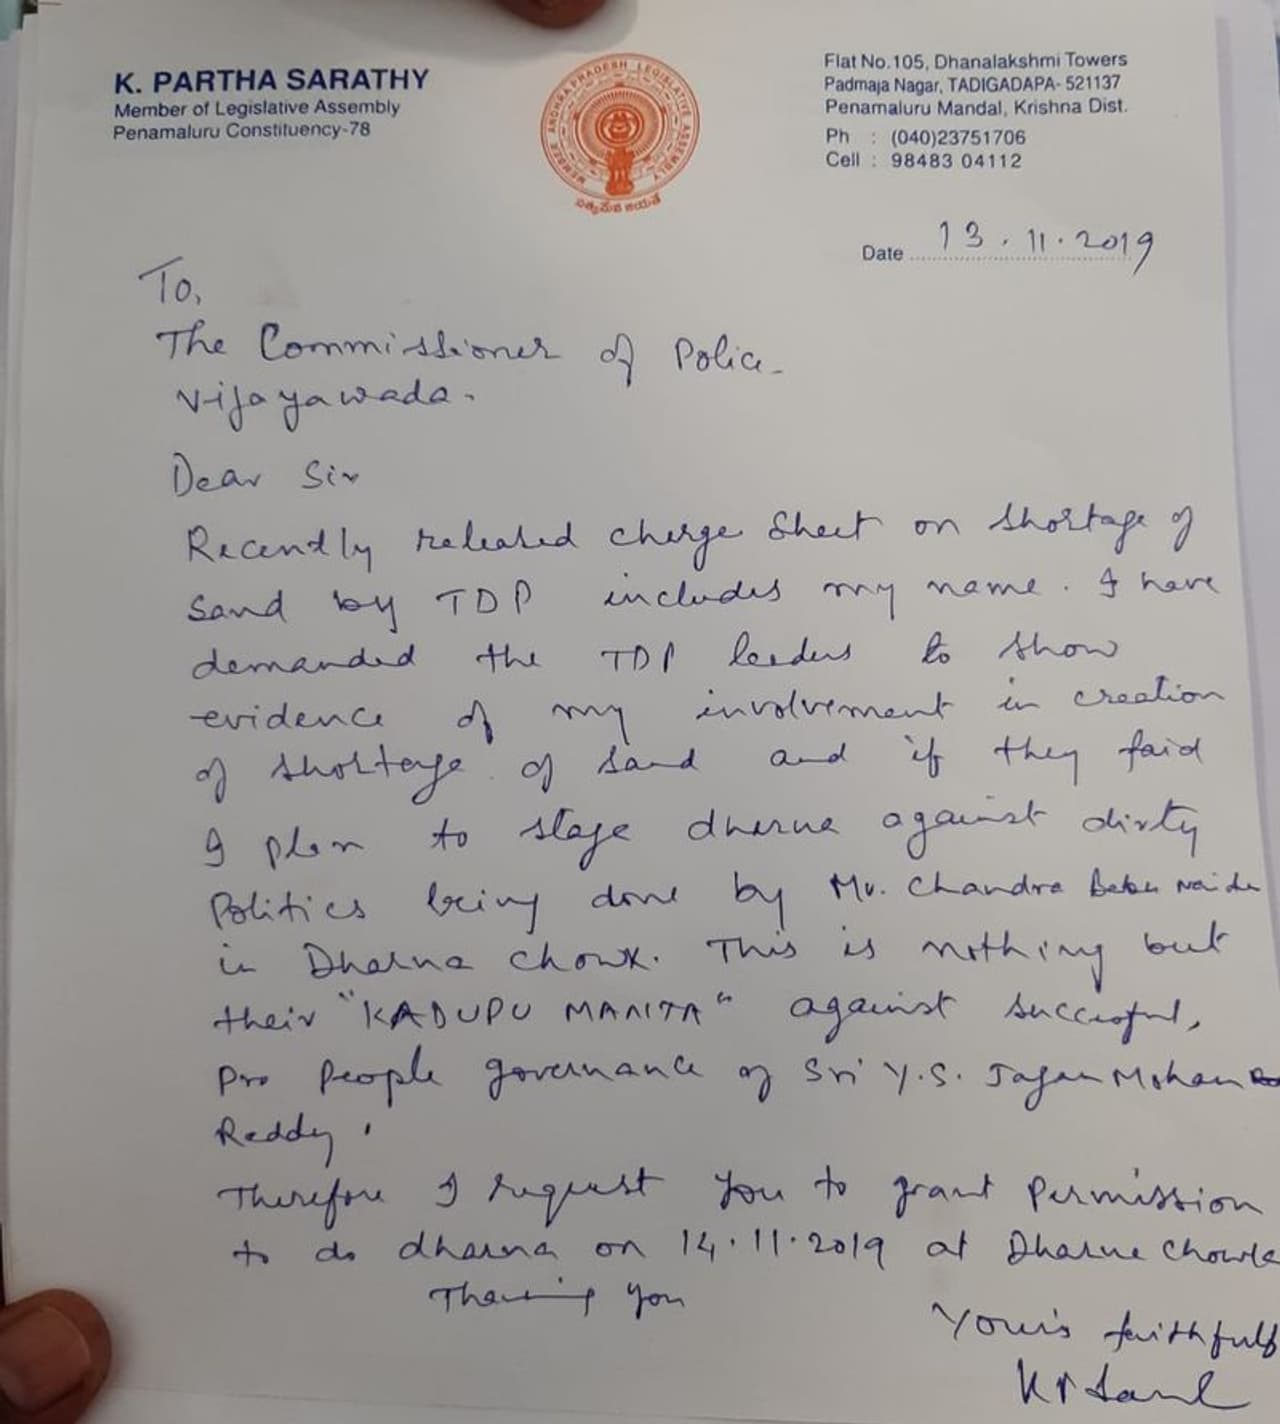 K. PARTHA SARATHY
Member of Legislative Assembly
Penamaluru Constituency-78
MEMBER ANDHRA PRADESH LEGISLATIVE ASSEMBLY
సత్యమేవ జయతే
Flat No.105, Dhanalakshmi Towers
Padmaja Nagar, TADIGADAPA- 521137
Penamaluru Mandal, Krishna Dist.
Ph : (040)23751706
Cell : 98483 04112
Date 13.11.2019
To,
The Commissioner of Police
Vijayawada.
Dear Sir
Recently released charge sheet on shortage of
sand by TDP includes my name. I have
demanded the TDP leaders to show
evidence of my involvement in creation
of shortage of sand and if they faid
I plan to stage dharna against dirty
Politics being done by Mr. Chandra Babu Naidu
in Dharna chowk. This is nothing but
their "KADUPU MANTA" against successful,
pro people governance of Sri Y.S. Jagan Mohan
Reddy.
Therefore I request you to grant permission
to do dharna on 14.11.2019 at Dharna Chowk
Thanking you
Your's faithfully